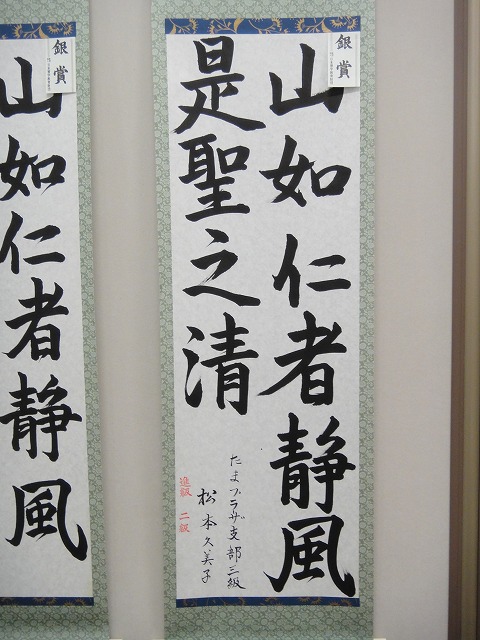 銀賞
山如仁者静風
是聖之清
たまプラザ支部三級
松本久美子
進級 二級
銀賞
山如仁者静風